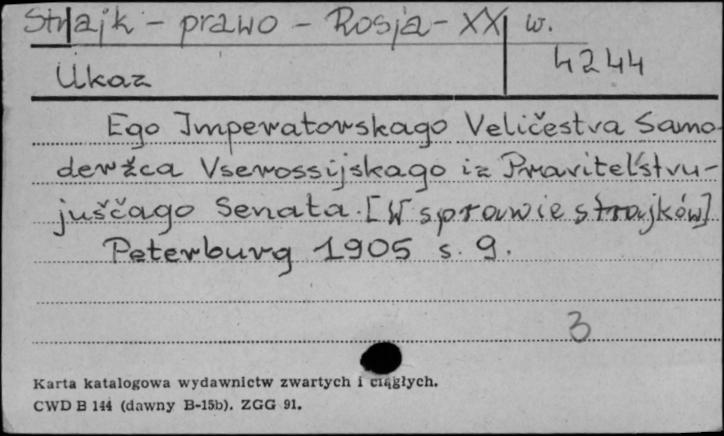 Strajk - prawo - Rosja - XX w.
Ukaz 4244
Ego Imperatorskago Veličestva Samo
deržca Vserossijskago iz Pravitel'stvu-
juščago Senata. [W sprawie strajków].
Peterburg 1905 s. 9.
3
Karta katalogowa wydawnictw zwartych i ciągłych.
CWD B 144 (dawny B-15b). ZGG 91.